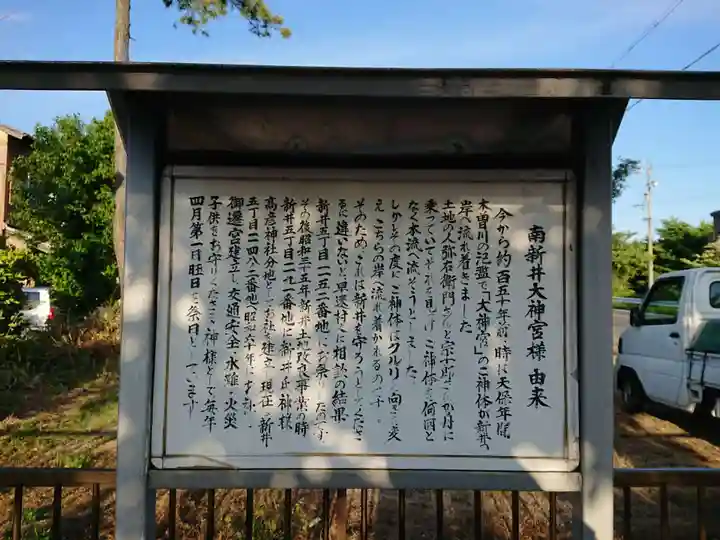 南新井大神宮様 由来
今から約百五十年前、時は天保年間、
木曽川の氾濫で「大神宮」のご神体が新井の
岸へ流れ着きました。
土地の人弥右衛門さんと宗七郎さんが舟に
乗っていてそれを見つけ、ご神体を何回と
なく本流へ流そうとしました。
しかしその度にご神体はクルリと向きを変
え、こちらの岸へ流れ着かれるのです。
そのため、これは新井を守ろうとしてくださ
るに違いないと、早速村で相談の結果、
新井五丁目一五二番地にお祭りした
その後昭和三十三年新井 改 事業の時
新井五丁目一一九二番地に新井氏神様
高彦神社分地としてお社を建立、現在の新井
五丁目一四八二番地に昭和六 年にお社
御遷宮建立し、交通安全・水難・火災
子供をお守りくださる神様として、毎年
四月第一日曜日を祭日としています